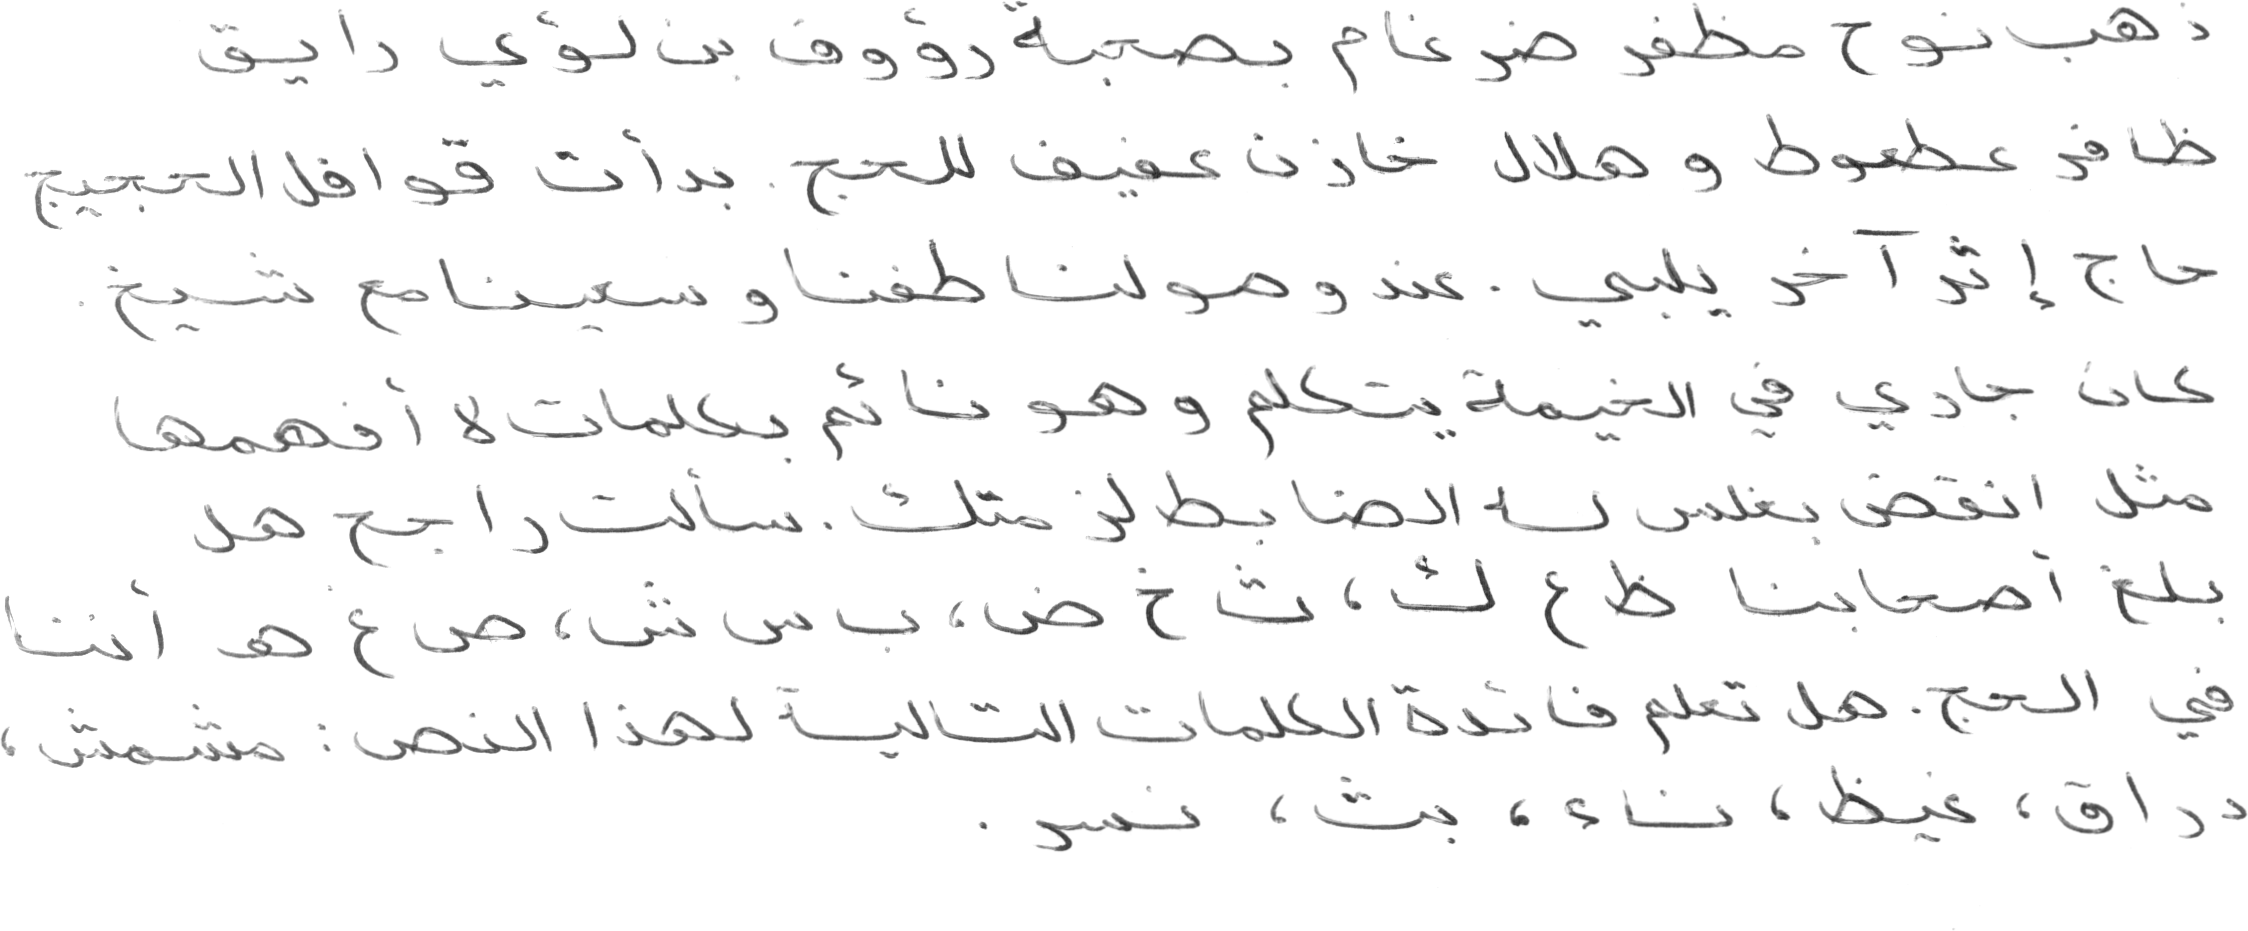 ذهب نوح مظفر ضرغام بصحبة رؤوف بن لؤي رايق
ظافر عطعوط و هلال خازن عفيف للحج. بدأت قوافل الحجيج
حاج إثر آخر يلبي. عند وصولنا طفنا و سعينا مع شيخ.
كان جاري في الخيمة يتكلم و هو نائم بكلمات لا أفهمها
مثل انقض بغلس لسه الضابط لز متلك. سألت راجح هل
بلغ أصحابنا ظ ع ك، ث خ ض، ب س ش، ص غ هـ أننا
في الحج. هل تعلم فائدة الكلمات التالية لهذا النص: مشمش،
دراق، غيظ، ناء، بث، نسر.